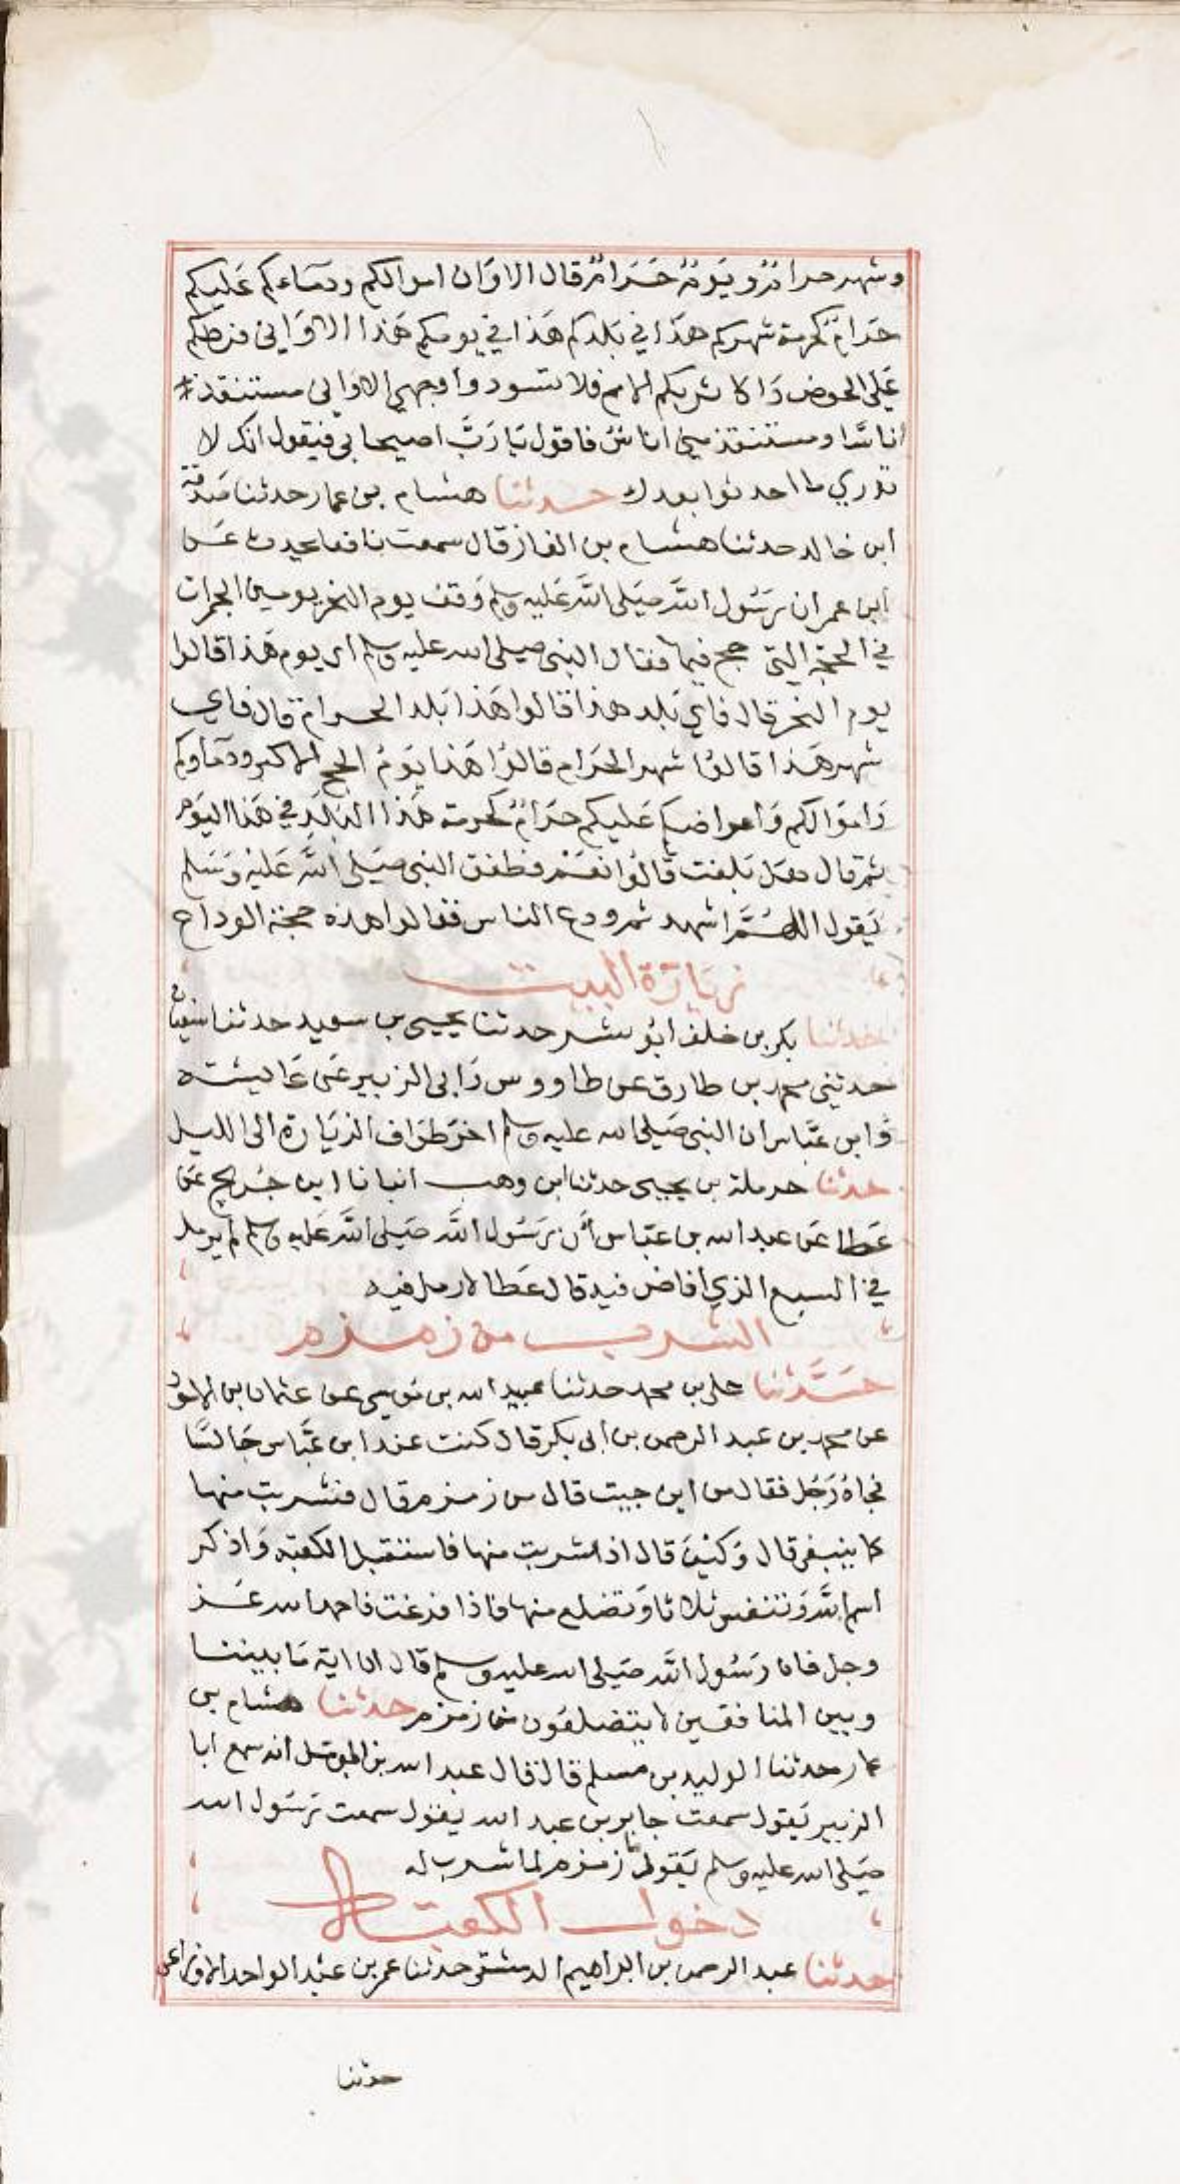 وشهر حرام ويوم حرام قال الا وان اموالكم ودماءكم عليكم
حرام كحرمة شهركم هذا في بلدكم هذا في يومكم هذا الا واني فرطكم
على الحوض واكاثر بكم الامم فلا تسودوا وجهي الا واني مستنقذ
اناسا ومستنقذ مني اناس فاقول يا رب اصيحابي فيقول انك لا
تدري ما احدثوا بعدك حدثنا هشام بن عمار حدثنا صدقة
ابن خالد حدثنا هشام بن الغاز قال سمعت نافعا يحدث عن
ابن عمر ان رسول الله صلى الله عليه وسلم وقف يوم النحر يوم بين الجمرات
في الحجة التي حج فيها فقال النبي صلى الله عليه وسلم اي يوم هذا قالوا
يوم النحر قال فاي بلد هذا قالوا هذا بلد الحرام قال فاي
شهر هذا قالوا شهر الحرام قالوا هذا يوم الحج الاكبر ودماوكم
واموالكم واعراضكم عليكم حرام كحرمة هذا البلد في هذا اليوم
ثم قال هل بلغت قالوا نعم فطفق النبي صلى الله عليه وسلم
يقول اللهم اشهد ثم ودع الناس فقالوا هذه حجة الوداع
زيارة البيت
حدثنا بكر بن خلف ابو بشر حدثنا يحيى بن سعيد حدثنا سفيان
حدثني محمد بن طارق عن طاووس وابي الزبير عن عايشة
وابن عباس ان النبي صلى الله عليه وسلم اخر طواف الزيارة الى الليل
حدثنا حرملة بن يحيى حدثنا ابن وهب انبانا ابن جريج عن
عطا عن عبد الله بن عباس ان رسول الله صلى الله عليه وسلم لم يرمل
في السبع الذي افاض فيه قال عطا لا رمل فيه
الشرب من زمزم
حدثنا علي بن محمد حدثنا عبيد الله بن موسى عن عثمان بن الاسود
عن محمد بن عبد الرحمن بن ابي بكر قال كنت عند ابن عباس جالسا
فجاه رجل فقال من اين جيت قال من زمزم قال فشربت منها
كما ينبغي قال وكيف قال اذا شربت منها فاستقبل الكعبة واذكر
اسم الله وتنفس ثلاثا وتضلع منها فاذا فرغت فاحمد الله عز
وجل فان رسول الله صلى الله عليه وسلم قال ان اية ما بيننا
وبين المنافقين لا يتضلعون من زمزم حدثنا هشام بن
عمار حدثنا الوليد بن مسلم قال قال عبد الله بن المؤمل انه سمع ابا
الزبير يقول سمعت جابر بن عبد الله يقول سمعت رسول الله
صلى الله عليه وسلم يقول ما زمزم لما شرب له
دخول الكعبة
حدثنا عبد الرحمن بن ابراهيم الدمشقي حدثنا عمر بن عبد الواحد الاوزاعي
حدثنا